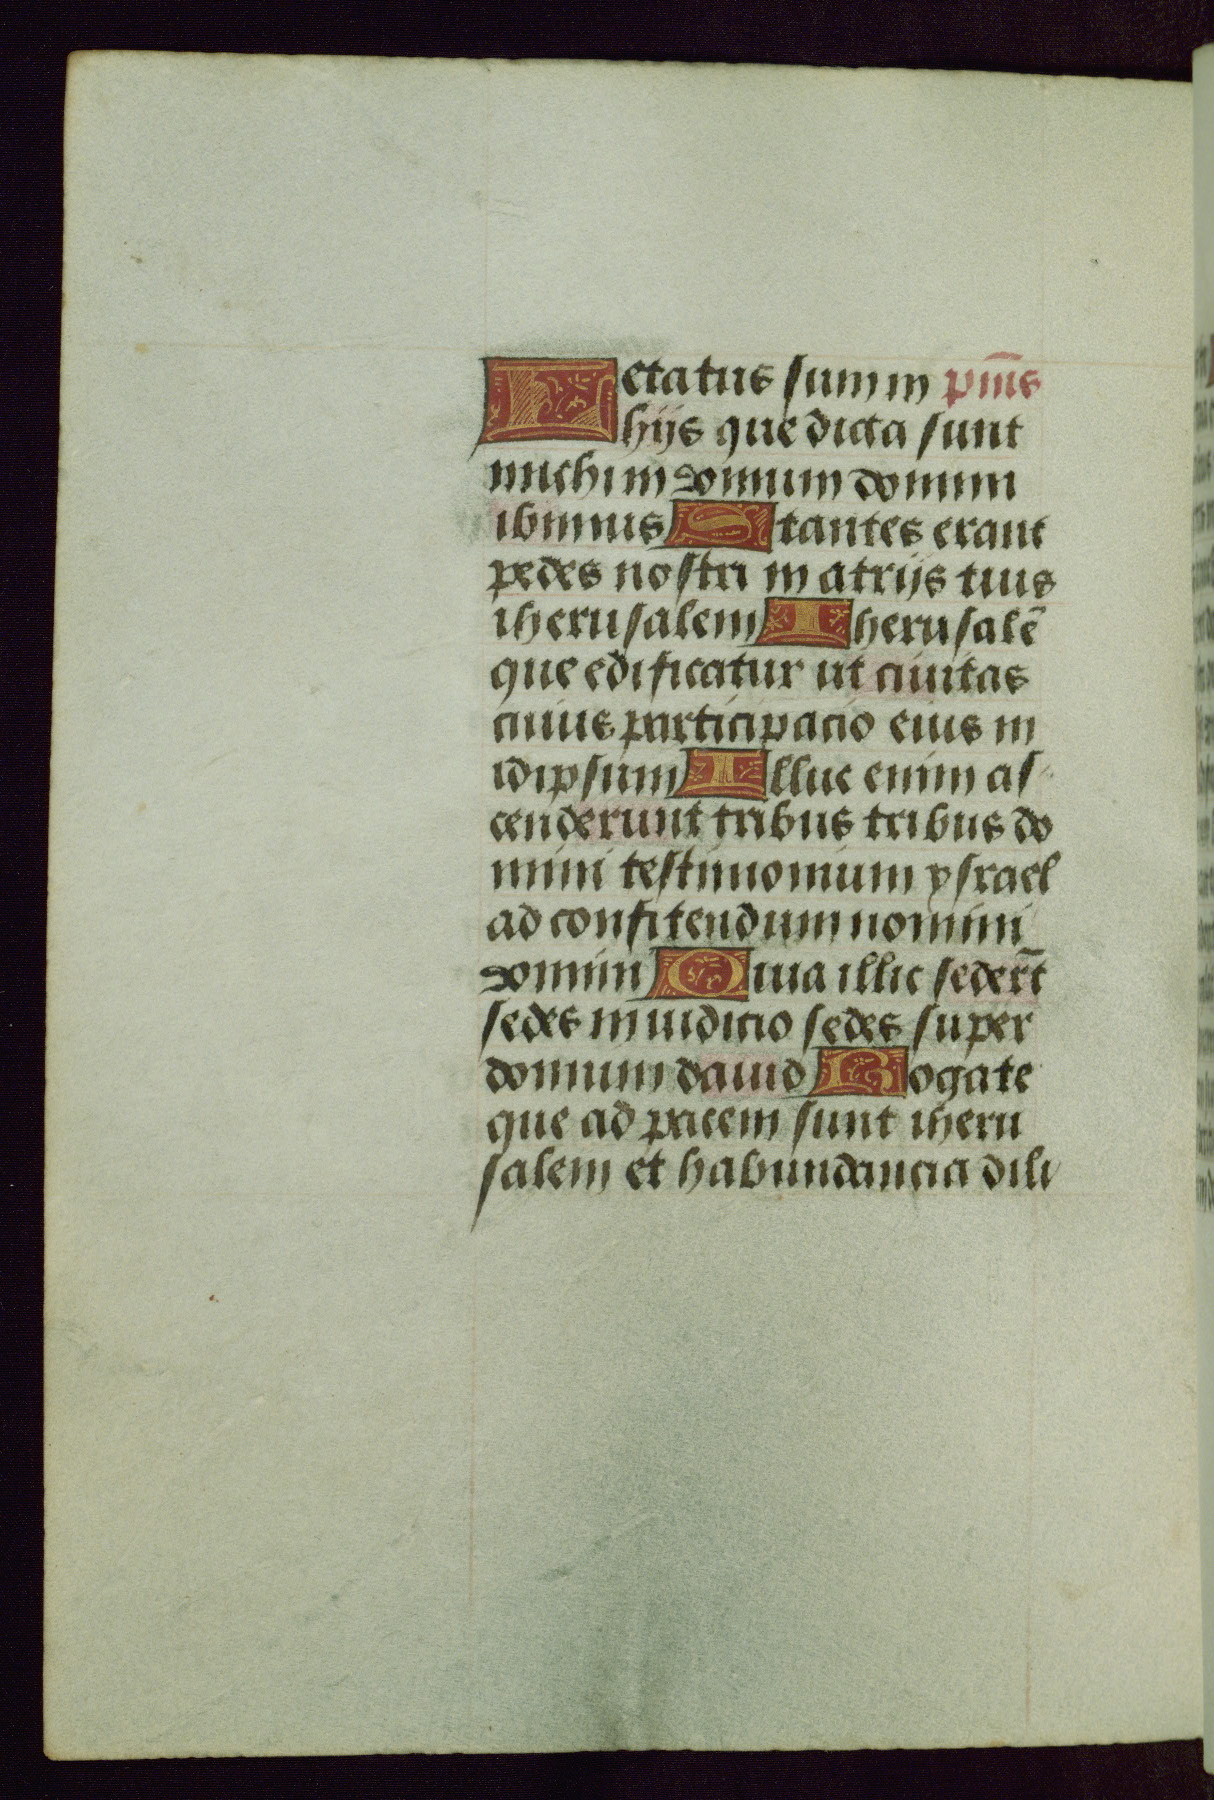 Letatus sum in p̄ms
hijs que dicta sunt
michi in domum domini
ibimus Stantes erant
pedes nostri in atrijs tuis
iherusalem Iherusalē
que edificatur ut ciuitas
cuius participacio eius in
idipsum Illuc enim as
cenderunt tribus tribus do
mini testimonium ysrael
ad confitendum nomini
domini Quia illic seder̄t
sedes in iudicio sedes super
domum dauid Rogate
que ad pacem sunt iheru
salem et habundancia dili